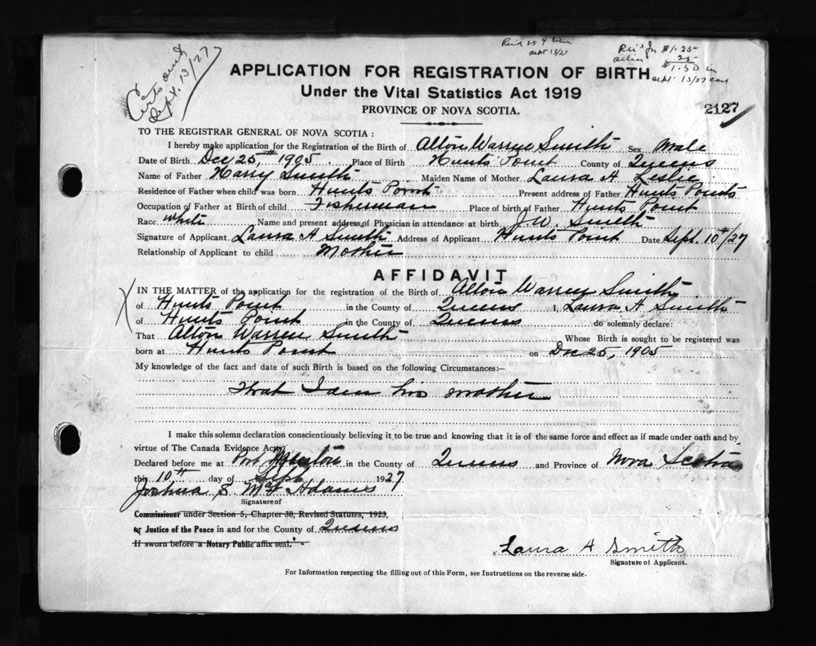 Sept. 13/27
$1.25
25
$1.50
Sept 13/27
APPLICATION FOR REGISTRATION OF BIRTH
Under the Vital Statistics Act 1919
PROVINCE OF NOVA SCOTIA.
2127
TO THE REGISTRAR GENERAL OF NOVA SCOTIA:
I hereby make application for the Registration of the Birth of Alton Warren Smith Sex Male
Date of Birth Dec 25th, 1905 Place of Birth Hunts Point County of Queens
Name of Father Harry Smith Maiden Name of Mother Laura A Leslie
Residence of Father when child was born Hunts Point Present address of Father Hunts Points
Occupation of Father at Birth of child Fisherman Place of birth of Father Hunts Point
Race White Name and present address of Physician in attendance at birth J. W. Smith
Signature of Applicant Laura A Smith Address of Applicant Hunts Point Date Sept. 10th/27
Relationship of Applicant to child Mother
AFFIDAVIT
IN THE MATTER of the application for the registration of the Birth of Alton Warren Smith
of Hunts Point in the County of Queens I, Laura A Smith
of Hunts Point in the County of Queens do solemnly declare:
That Alton Warren Smith Whose Birth is sought to be registered was
born at Hunts Point on Dec 25, 1905
My knowledge of the fact and date of such Birth is based on the following Circumstances:—
That I am his mother
I make this solemn declaration conscientiously believing it to be true and knowing that it is of the same force and effect as if made under oath and by
virtue of The Canada Evidence Act.
Declared before me at Port in the County of Queens and Province of Nova Scotia
this 10th day of Sept 1927
Joshua S. McAdams
Signature of
Commissioner under Section 5, Chapter 38, Revised Statutes, 1923,
or Justice of the Peace in and for the County of Queens
If sworn before a Notary Public affix seal.
x Laura A Smith
Signature of Applicant.
For Information respecting the filling out of this Form, see Instructions on the reverse side.